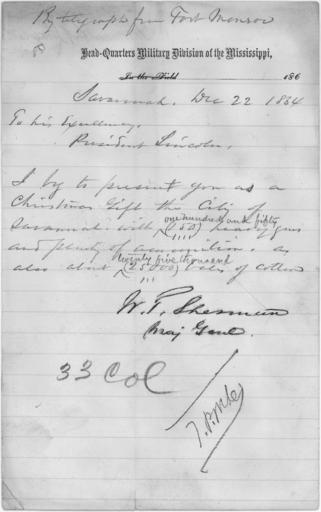 By telegraph from Fort Monroe
Head-Quarters Military Division of the Mississippi,
In the Field 186
Savannah, Dec 22 1864
To his Excellency,
President Lincoln,
I beg to present you as a
Christmas Gift the City of
one hundred and fifty
Savannah with (150) heavy guns
and plenty of ammunition & as
twenty five thousand
also about (25000) bales of cotton
W. T. Sherman
Maj Genl.
33 Col